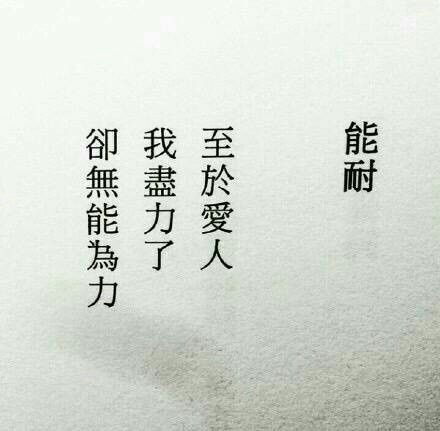 能耐
至於愛人
我盡力了
卻無能為力